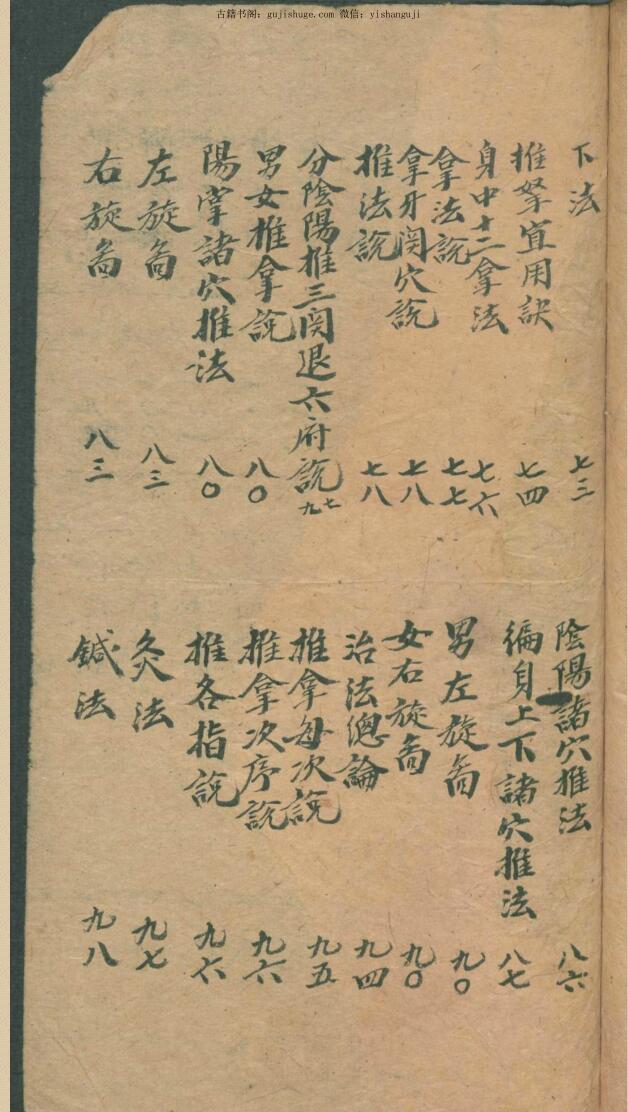 古籍书阁：gujishuge.com 微信：yishanguji
下法 七三
推拏宜用訣 七四
身中十二拿法 七六
拿法說 七七
拿牙関穴說 七八
推法說 七八
分陰陽推三関退六府說 七九
男女推拿說 八〇
陽掌諸穴推法 八〇
左旋啚 八三
右旋啚 八三
陰陽諸穴推法 八六
徧身上下諸穴推法 八七
男左旋啚 九〇
女右旋啚 九〇
治法總論 九四
推拿每次說 九五
推拿次序說 九六
推各指說 九六
灸法 九七
鍼法 九八